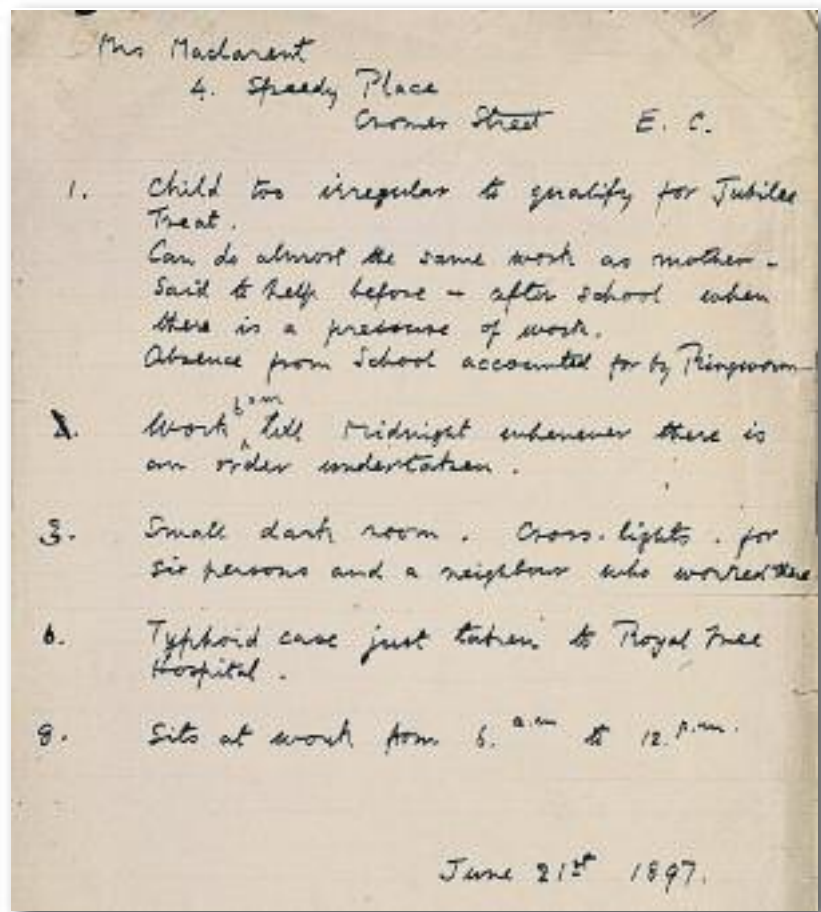 Mrs Maclarent
4. Speedy Place
Cromer Street E. C.
1. Child too irregular to qualify for Jubilee
Treat.
Can do almost the same work as mother -
Said to help before - after school when
there is a pressure of work.
Absence from School accounted for by Ringworm
2. Work 6 am till Midnight whenever there is
an order undertaken.
3. Small dark room. Cross-lights. for
six persons and a neighbour who worked there
6. Typhoid case just taken to Royal Free
Hospital.
8. Sits at work from 6. a.m to 12. p.m.
June 21st 1897.